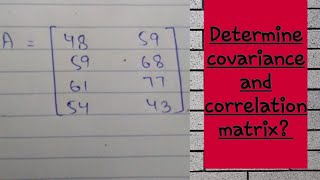 A = [48 59
59 68
61 77
54 43]
Determine
covariance
and
correlation
matrix?